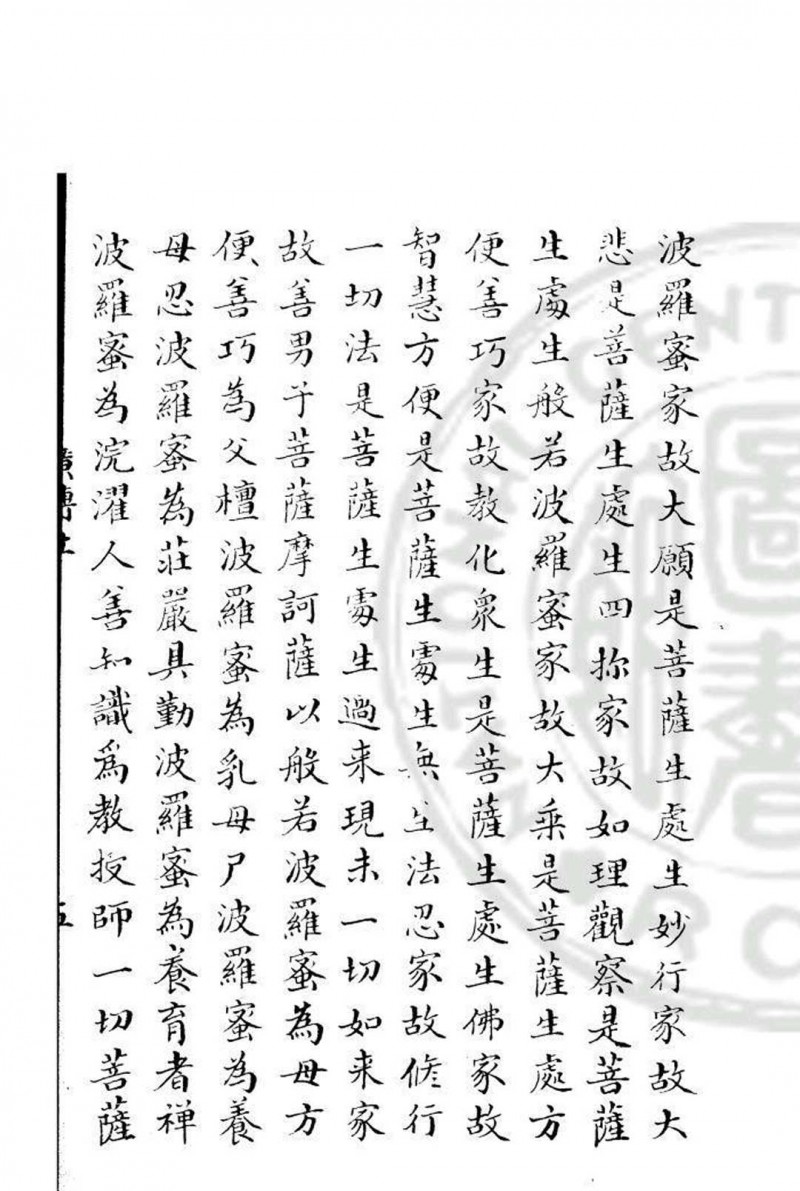 波羅蜜家故大願是菩薩生處生妙行家故大
悲是菩薩生處生四攝家故如理觀察是菩薩
生處生般若波羅蜜家故大乘是菩薩生處方
便善巧家故教化眾生是菩薩生處生佛家故
智慧方便是菩薩生處生無生法忍家故修行
一切法是菩薩生處生過来現未一切如来家
故善男子菩薩摩訶薩以般若波羅蜜為母方
便善巧為父檀波羅蜜為乳母尸波羅蜜為養
母忍波羅蜜為莊嚴具勤波羅蜜為養育者禅
波羅蜜為浣濯人善知識爲教授師一切菩薩
五